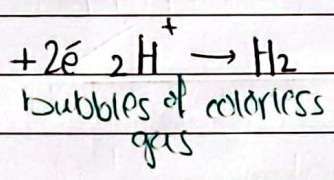 +2é 2H⁺ → H₂
bubbles of colorless
gas